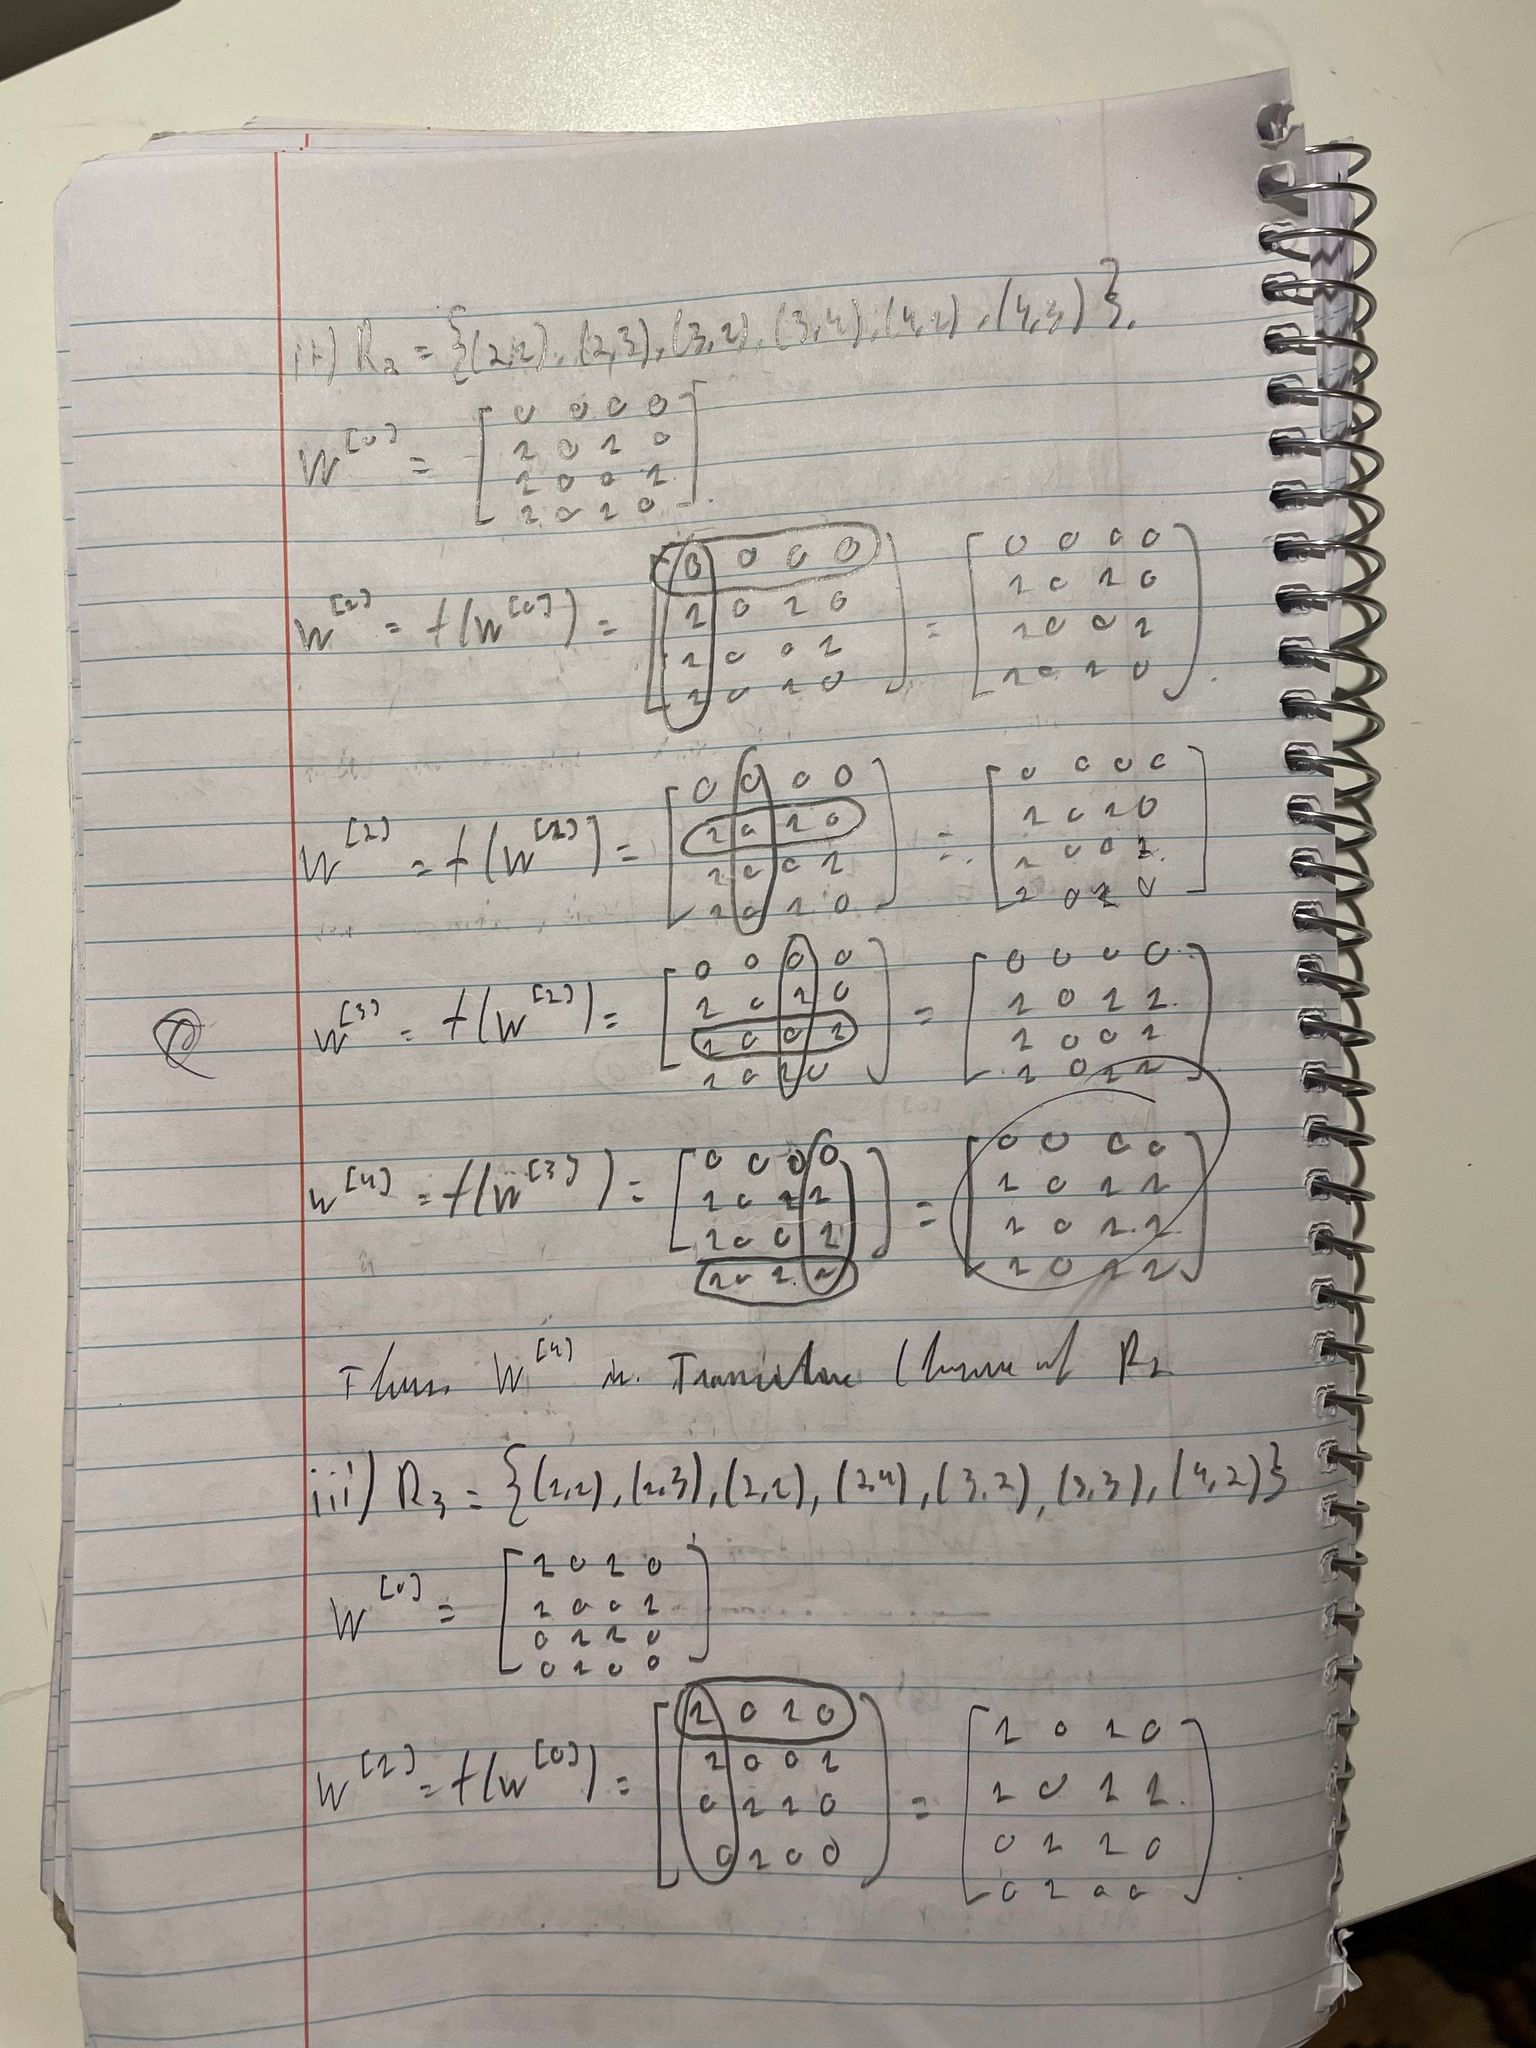 ii) R₂ = {(2,1), (2,3), (3,1), (3,4), (4,1), (4,3)}.
W^[0] = [0 0 0 0
1 0 1 0
1 0 0 1
1 0 1 0].
W^[1] = f(W^[0]) = [0 0 0 0 = [0 0 0 0
1 0 1 0 1 0 1 0
1 0 0 1 1 0 0 1
1 0 1 0] 1 0 1 0].
W^[2] = f(W^[1]) = [0 0 0 0 = [0 0 0 0
1 0 1 0 1 0 1 0
1 0 0 1 1 0 0 1
1 0 1 0] 1 0 1 0]
W^[3] = f(W^[2]) = [0 0 0 0 = [0 0 0 0
1 0 1 0 1 0 1 1
1 0 0 1 1 0 0 1
1 0 1 0] 1 0 1 1]
W^[4] = f(W^[3]) = [0 0 0 0 = [0 0 0 0
1 0 1 1 1 0 1 1
1 0 0 1 1 0 1 1
1 0 1 1] 1 0 1 1]
Thus W^[4] is Transitive Closure of R₂
iii) R₃ = {(1,1), (1,3), (2,1), (2,4), (3,2), (3,3), (4,2)}
W^[0] = [1 0 1 0
1 0 0 1
0 1 1 0
0 1 0 0]
W^[1] = f(W^[0]) = [1 0 1 0 = [1 0 1 0
1 0 0 1 1 0 1 1
0 1 1 0 0 1 1 0
0 1 0 0] 0 1 0 0]